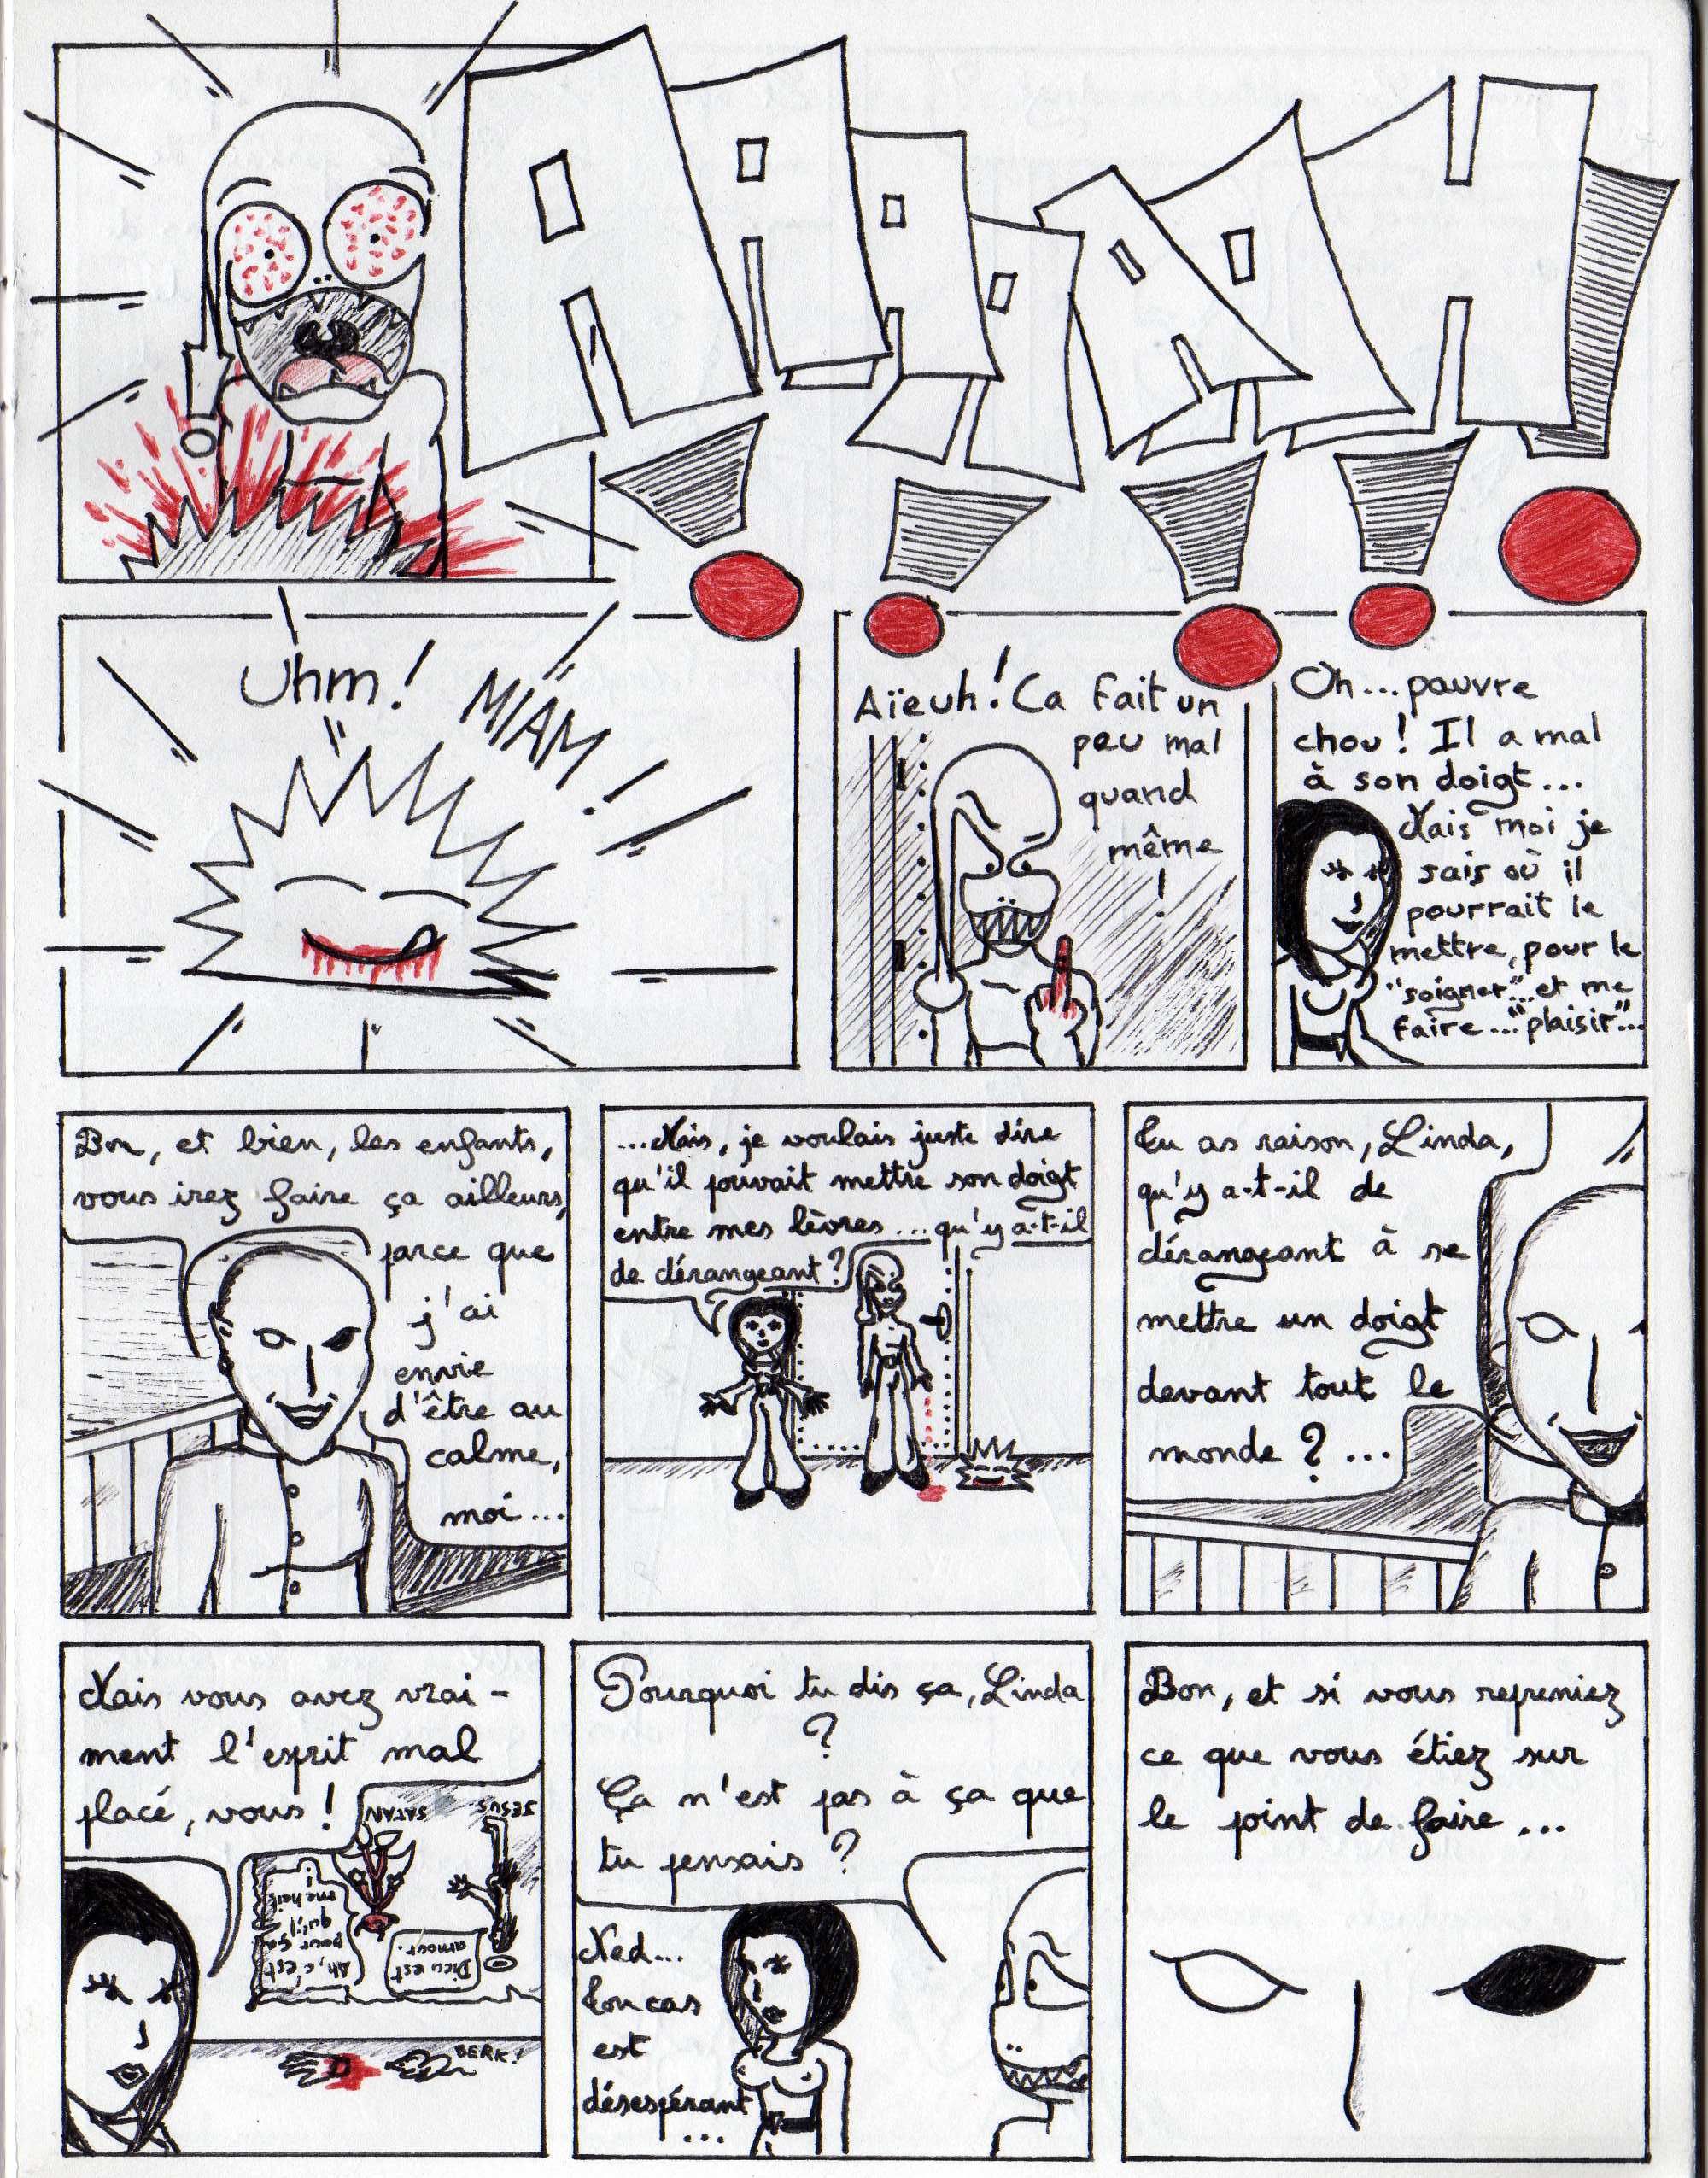 AAAAAAH!!!!!
Uhm!
MIAM!
Aïeuh! Ca fait un
peu mal
quand
même
!
Oh...pauvre
chou! Il a mal
à son doigt...
Mais moi je
sais où il
pourrait le
mettre, pour le
"soigner"...et me
faire..."plaisir"...
Bon, et bien, les enfants,
vous irez faire ça ailleurs,
parce que
j'ai
envie
d'être au
calme,
moi...
...Mais, je voulais juste dire
qu'il pouvait mettre son doigt
entre mes lèvres...qu'y a-t-il
de dérangeant?
Tu as raison, Linda,
qu'y a-t-il de
dérangeant à se
mettre un doigt
devant tout le
monde ?...
Mais vous avez vrai-
ment l'esprit mal
placé, vous !
SATAN
JESUS
Ah, c'est
pour ça
qu'il
me hait!
Dieu est
amour.
BERK!
Pourquoi tu dis ça, Linda
?
Ça n'est pas à ça que
tu pensais ?
Ned...
Ton cas
est
désespérant
...
Bon, et si vous repreniez
ce que vous étiez sur
le point de faire...